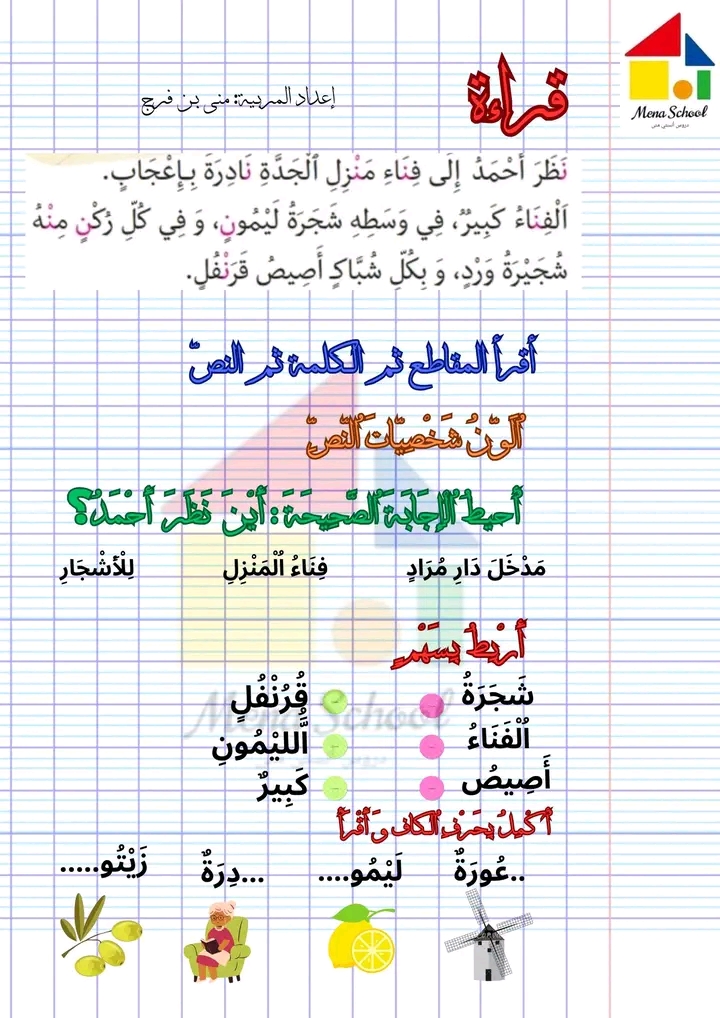 Mena School
دروس آنستي منى
قراءة
إعداد المربية: منى بن فرج
نَظَرَ أَحْمَدُ إِلَى فِنَاءِ مَنْزِلِ ٱلْجَدَّةِ نَادِرَةَ بِإِعْجَابٍ.
اَلْفِنَاءُ كَبِيرٌ، فِي وَسَطِهِ شَجَرَةُ لَيْمُونٍ، وَ فِي كُلِّ رُكْنٍ مِنْهُ
شُجَيْرَةُ وَرْدٍ، وَ بِكُلِّ شُبَّاكٍ أَصِيصُ قَرَنْفُلٍ.
أقرأ المقاطع ثم الكلمة ثم النصّ
أُلَوِّنُ شَخْصِيَّاتَ ٱلنَّصِّ
أُحيطُ ٱلإِجَابَةَ ٱلصَّحِيحَةَ : أَيْنَ نَظَرَ أَحْمَدُ؟
مَدْخَلَ دَارِ مُرَادٍ فِنَاءُ ٱلْمَنْزِلِ لِلْأشْجَارِ
أَرْبِطُ بِسَهْمٍ
شَجَرَةُ قُرُنْفُلٍ
ٱلْفَنَاءُ ٱَلليْمُونِ
أَصِيصُ كَبِيرٌ
Mena School
دروس آنستي منى
أُكْمِلُ بِحَرْفِ ٱلكاف وَ أَقْرَأُ
..عُورَةٌ لَيْمُو.... ...دِرَةٌ زَيْتُو.....